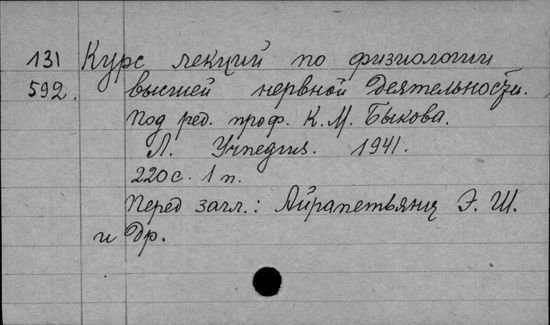 131 Курс лекций по физиологии
592. высшей нервной деятельности.
Под ред. проф. К. М. Быкова.
Л. Учпедгиз. 1941.
220 с. 1 л.
Перед загл.: Айрапетьянц Э. Ш.
и др.